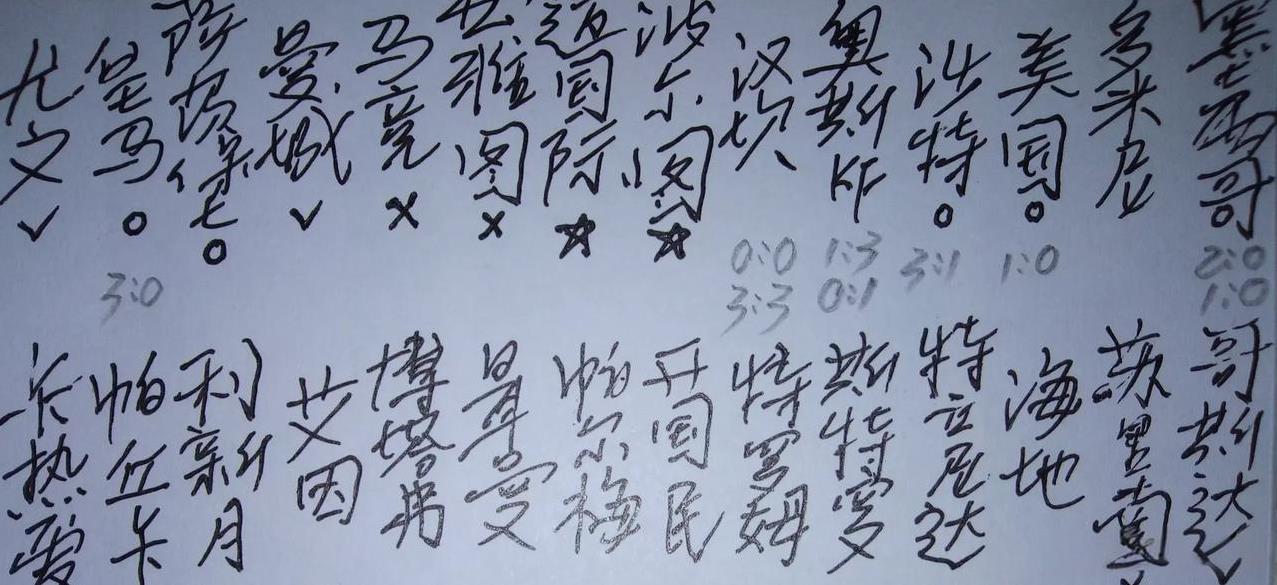 尤文✓
皇马○
曼城✓
马竞×
雅图×
迈国际☆
波尔图☆
汉坎
奥斯KF
沙特○
美国○
多米尼
墨西哥
3:0
0:0 1:3 3:1 1:0 2:0
3:3 0:1 1:0
卡热爱
帕丘卡
利新月
艾因
博塔弗
帕尔梅
开国民
特罗姆
斯特罗
特立尼达
海地
苏里南✓
哥斯达✓